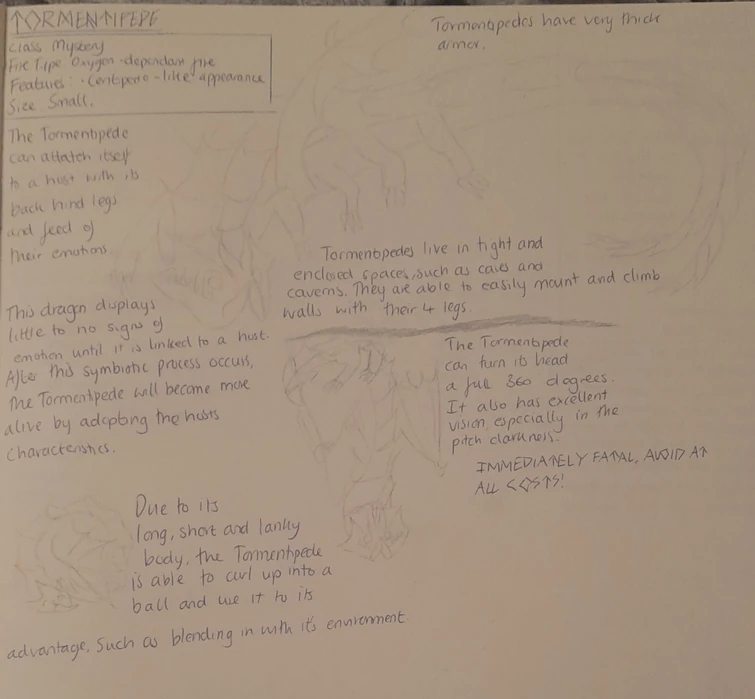 TORMENTIPEDE
Class Mystery
Fire Type Oxygen-dependant fire
Features: -Centipede-like appearance
Size Small.
Tormentipedes have very thick
armor.
The Tormentipede
can attatch itself
to a host with its
back hind legs
and feed of
their emotions.
Tormentipedes live in tight and
enclosed spaces, such as caves and
caverns. They are able to easily mount and climb
walls with their 4 legs.
This dragon displays
little to no signs of
emotion until it is linked to a host.
After this symbiotic process occurs,
the Tormentipede will become more
alive by adopting the hosts
characteristics.
The Tormentipede
can turn its head
a full 360 degrees.
It also has excellent
vision, especially in the
pitch darkness.
IMMEDIATELY FATAL, AVOID AT
ALL COSTS!
Due to its
long, short and lanky
body, the Tormentipede
is able to curl up into a
ball and use it to its
advantage. Such as blending in with it's enviroment